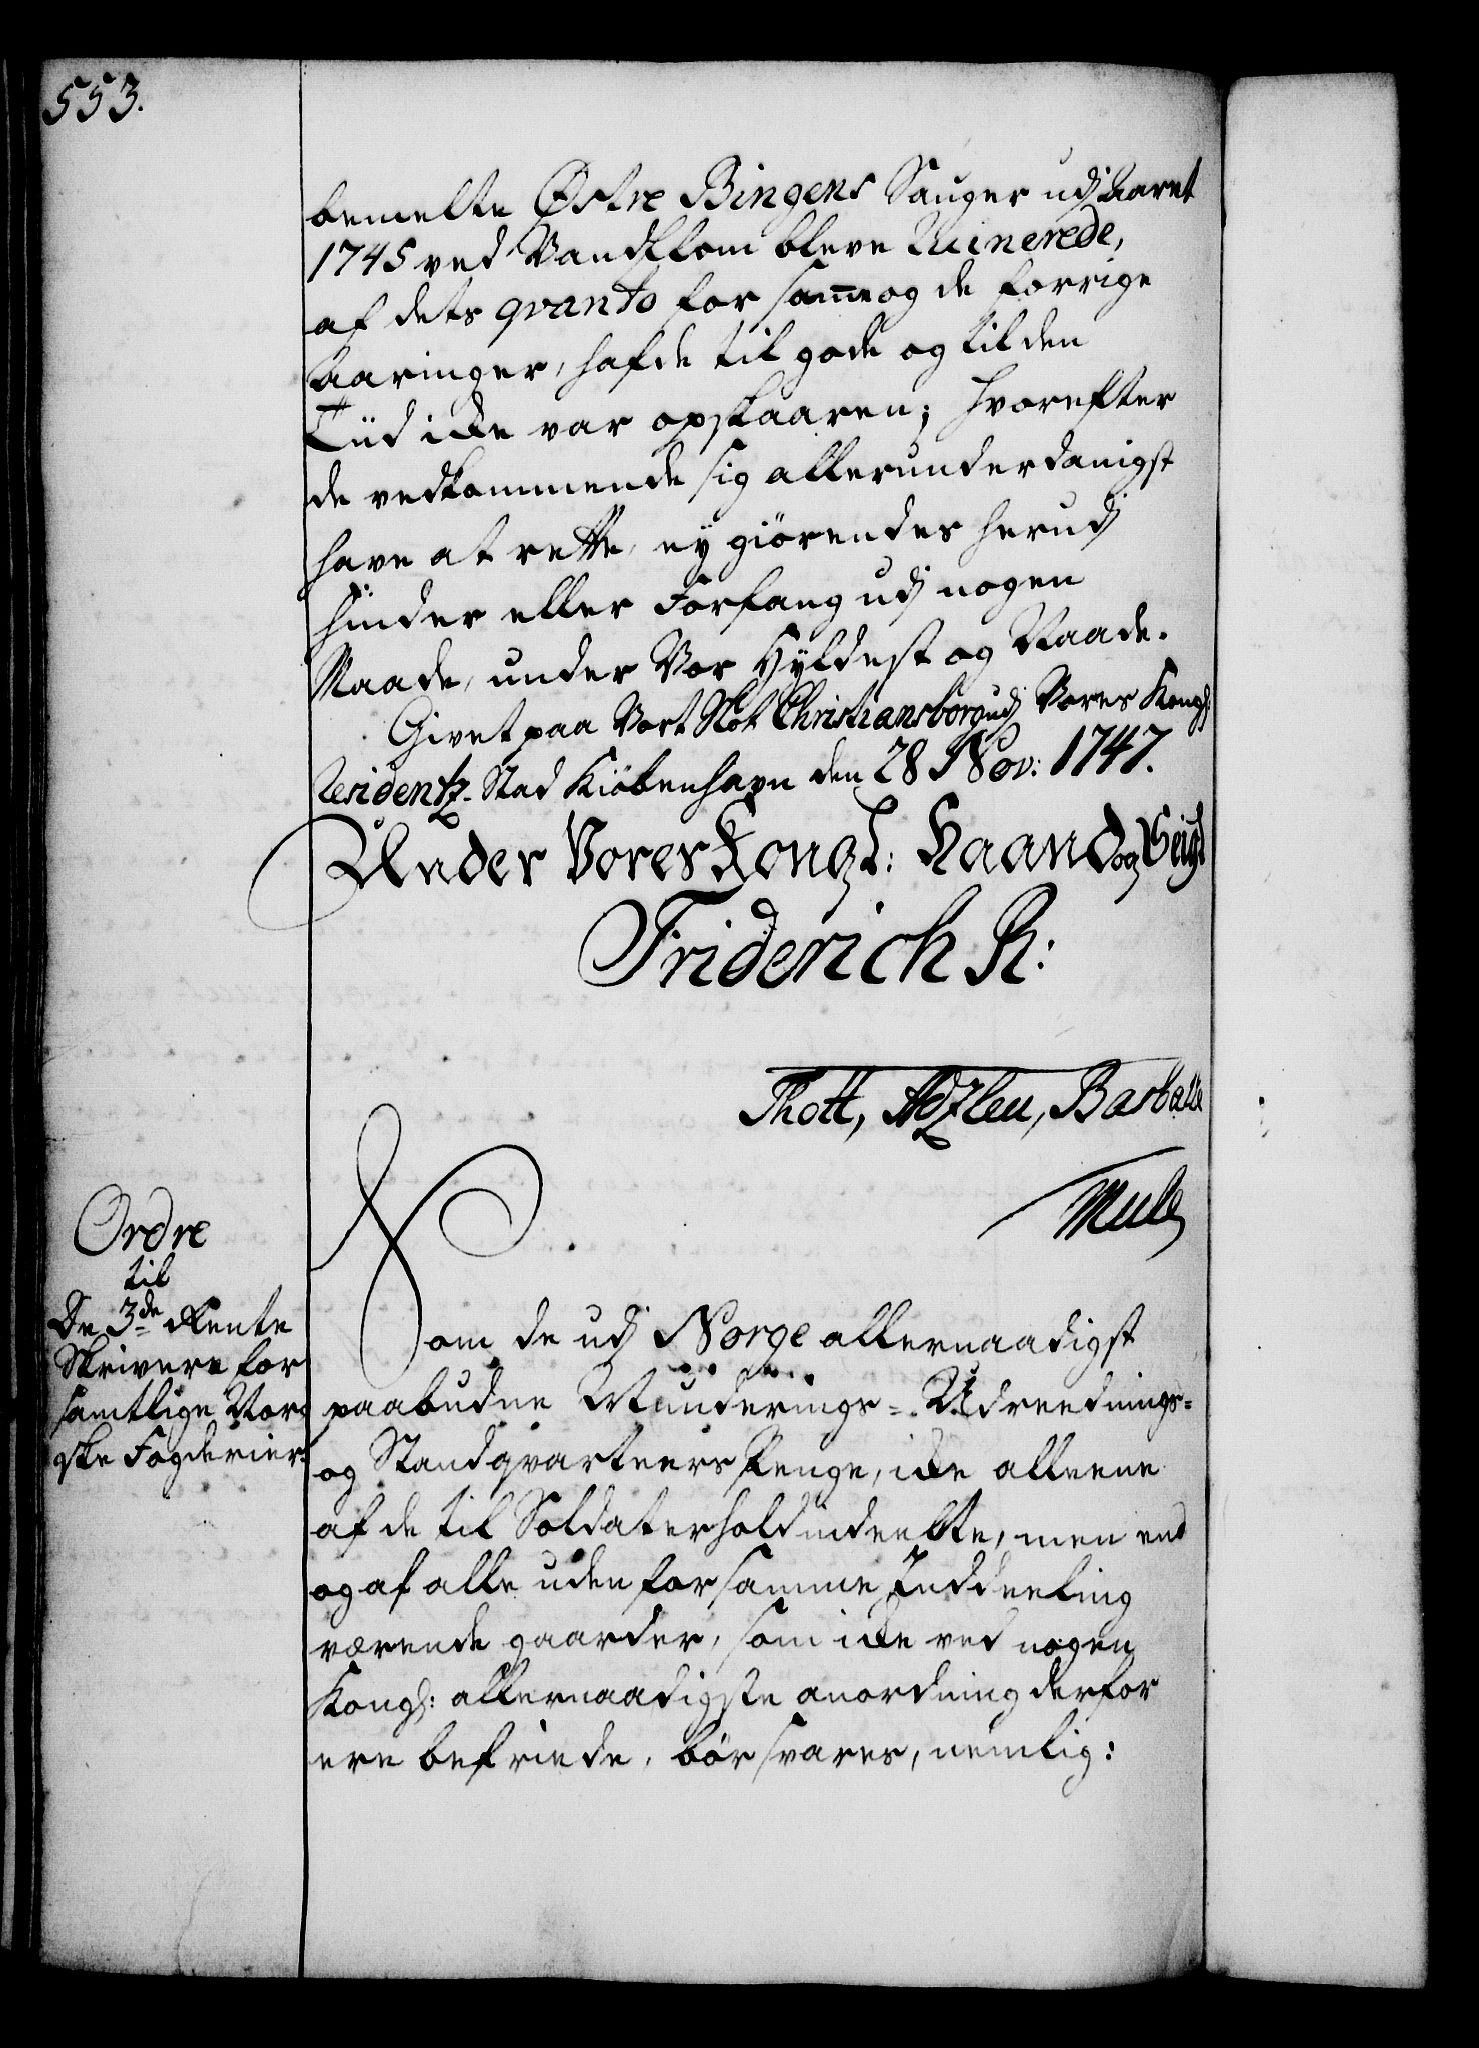 553.
bemelte Østre Bingens Sauger udj Aaret
1745 ved Vandflom bleve Ruinerede,
af dets qvanto for samme og de forrige
Aaringer, hafde til gode og til den
Tiid icke var opskaaren; hvorefter
de vedkommende sig allerunderdanigst
have at rette, ey giørendes herudj
hinder eller Forfang udj nogen
Maade, under Vor Hyldest og Naade.
Givet paa Vort Slot Christiansborg udj Vores Kongl:
Residentz-Stad Kiøbenhavn den 28 Nov: 1747.
Under Vores Kongl: Haand og Seigl
Friderich R:
Thott, Holzten, Barbalk
Mule
Ordre
til
De 3de Rente
Skrivere for
samtlige Nor-
ske Fogderier.
Som de udj Norge allernaadigst
paabudne Munderings- Udreednings-
og Standqvarteers Penge, icke alleene
af de til Soldaterhold indeelte, men end
og af alle uden for samme Inddeeling
værende gaarder, som icke ved nogen
Kongl: allernaadigste anordning derfor
ere befriede, bør svares, nemlig: